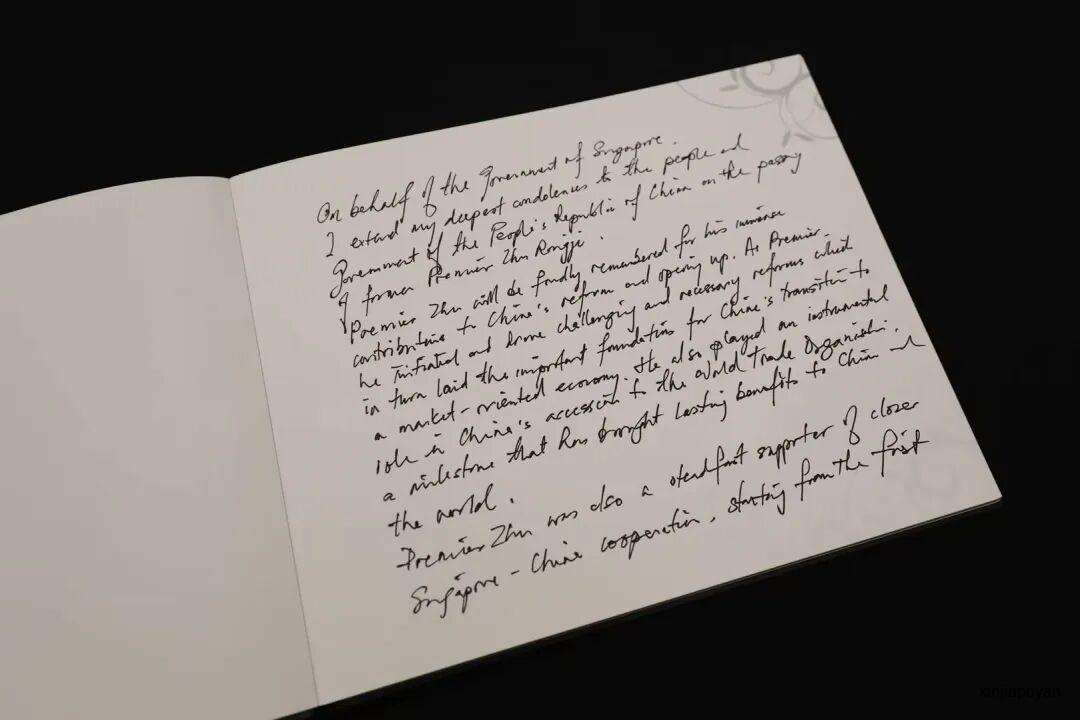 On behalf of the Government of Singapore.
I extend my deepest condolences to the people and
Government of the People's Republic of China on the passing
of former Premier Zhu Rongji.
Premier Zhu will be fondly remembered for his immense
contributions to China's reform and opening up. As Premier,
he initiated and drove challenging and necessary reforms which
in turn laid the important foundations for China's transition to
a market-oriented economy. He also played an instrumental
role in China's accession to the World Trade Organisation,
a milestone that has brought lasting benefits to China and
the world.
Premier Zhu was also a steadfast supporter of closer
Singapore - China cooperation, starting from the first
xinjiapoyan